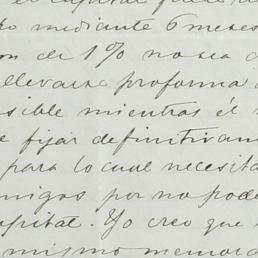 el capital
mediante 6 meses
de 1% no sea
llevarse proforma
sible mientras él
e fijar definitivam
para lo cual necesita
migos por no pode
apital. Yo creo que
mismo